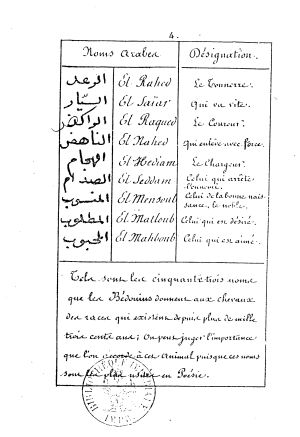 4.
Noms Arabes Désignation.
الرعد El Rahed Le Tonnerre.
السيّار El Saïar Qui va vite.
الراكض El Raqued Le Coureur.
الناهض El Nahed Qui enlève avec force.
الهجام El Hediam Le Chargeur.
الصدام El Seddam Celui qui arrête l'ennemi.
المنسوب El Mensoub Celui de la bonne nais-
sance, le noble.
المطلوب El Matloub Celui qui est désiré.
المحبوب El Mahboub Celui qui est aimé.
Tels sont les cinquante trois noms
que les Bédouins donnent aux chevaux
des races qui existent depuis plus de mille
trois cents ans; On peut juger l'importance
que l'on accorde à cet animal puisque ces noms
sont les plus usités en Poésie.